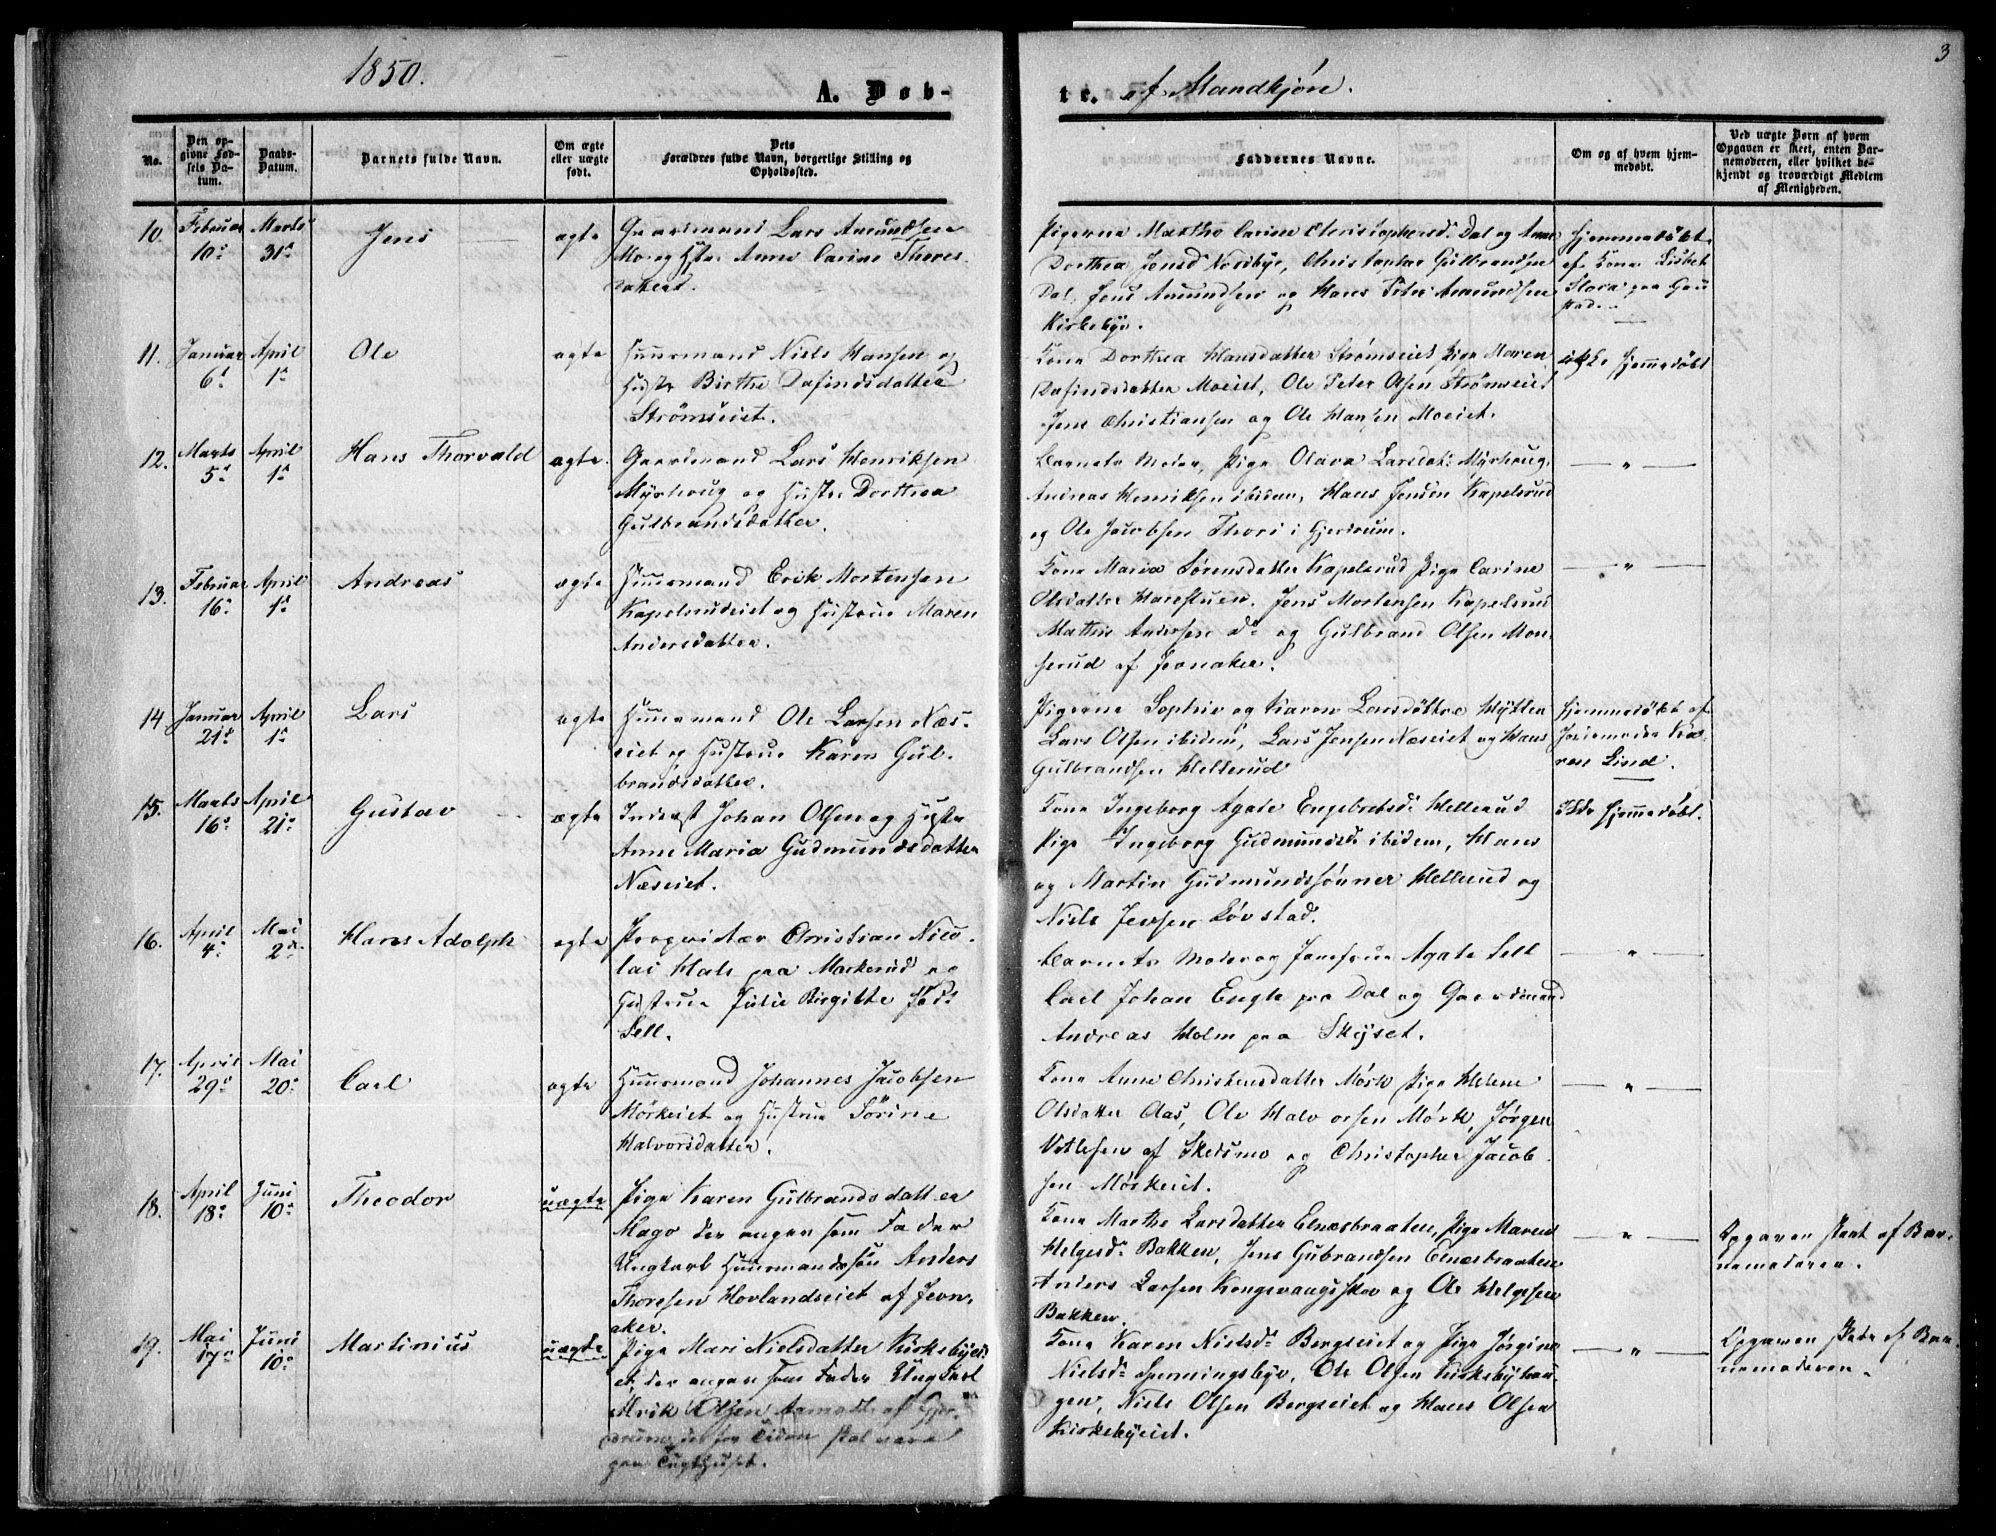 1850.
A. Døb-
te. af Mandkjøn.
3
No.
Den op-
givne Fød-
sels Da-
tum.
Daabs-
Datum.
Barnets fulde Navn.
Om ægte
eller uægte
født.
Dets
Forældres fulde Navn, borgerlige Stilling og
Opholdssted.
Faddernes Navne.
Om og af hvem hjem-
medøbt.
Ved uægte Børn af hvem
Opgaven er skeet, enten Bar-
nemoderen, eller hvilket be-
kjendt og troværdigt Medlem
af Menigheden.
10.
Februar
10.
Marts
31.
Jens
ægte
Gaardmand Lars Amundsen
Mo og Hstr. Anne Carine Thores-
datter.
Pigerne Marthe Carine Christophersd. Dal og Anne
Dorthea Jensd Nordbye, Christopher Gulbrandsen
Dal, Jens Amundsen og Hans Peter Amundsen
Kirkebye.
Hjemmedøbt
af Kone Lisbet
Stora paa Gau
stad.
11.
Januar
6.
April
1.
Ole
ægte
Huusmand Niels Hansen og
Hustr Birthe Dafindsdatter
Strømseiet.
Kone Dorthea Hansdatter Strømseiet Pige Maren
Dafindsdatter Moeiet, Ole Peter Olsen Strømseiet
Jens Christiansen og Ole Hansen Moeiet.
ikke hjemmedøbt
12.
Marts
5.
April
1.
Hans Thorvald
ægte.
Gaardmand Lars Henriksen
Myrhoug og Hustru Dorthea
Gulbrandsdatter.
Barnets Moder, Pige Olava Larsdat: Myrhoug,
Andreas Henriksen ibidem, Hans Jensen Kapelsrud
og Ole Jacobsen Thori i Gjerdrum.
— " —
13.
Februar
16.
April
1.
Andreas
ægte
Huusmand Erik Mortensen
Kapelsrudeiet og Hustrue Maren
Andersdatter.
Kone Maria Sørensdatter Kapelsrud Pige Carine
Olsdatter Harestuen. Jens Mortensen Kapelsrud
Mathis Andersen do og Gulbrand Olsen Mon-
serud af Jevnaker.
— " —
14
Januar
21.
April
1.
Lars
ægte
Huusmand Ole Larsen Næs-
eiet og Hustrue Karen Gul-
brandsdatter.
Pigerne Sophie og Karen Larsdøttre Mylla
Lars Olsen ibidem, Lars Jensen Næseiet og Hans
Gulbrandsen Hellerud
Hjemmedøbt af
Jordemoder Ka-
ren Lind.
15.
Marts
16.
April
21.
Gustav
ægte
Inderst Johan Olsen og Hustr
Anne Maria Gudmundsdatter
Næseiet.
Kone Ingeborg Agate Engebretsd. Hellerud
Pige Ingeborg Gudmundsd. ibidem, Hans
og Martin Gudmundssønner Hellerud og
Niels Jensen Løvstad.
Ikke hjemmedøbt.
16.
April
4.
Mai
2.
Hans Adolph
ægte
Proprietær Christian Nico-
lai Hals paa Markerud og
Hustrue Julie Birgitte fød.
Sell.
Barnets Moder og Jomfrue Agate Sell
Carl Johan Engh paa Dal og Gaardmand
Andreas Holm paa Skøyset.
— " —
17.
April
29.
Mai
20.
Carl
ægte
Huusmand Johannes Jacobsen
Mørkeiet og Hustrue Sørine
Halvorsdatter.
Kone Anne Christensdatter Mørk, Pige Helene
Olsdatter Aas, Ole Halvorsen Mørk, Jørgen
Vetlesen af Skedsmo og Christopher Jacob
sen Mørkeiet.
— " —
18.
April
18.
Juni
10.
Theodor
uægte
Pige Karen Gulbrandsdatter
Mago der angav som Fader
Ungkarl Huusmandssøn Anders
Thoresen Hovlandseiet af Jevn-
aker.
Kone Marthe Larsdatter Elnæsbraaten, Pige Maren
Helgesd. Bakken, Jens Gubrandsen Elnæsbraaten
Anders Larsen Kongsvangsskov og Ole Helgesen
Bakken.
— " —
Opgaven skeet af Bar-
nemoderen.
19.
Mai
17.
Juni
10.
Martinius
uægte
Pige Mari Nielsdatter Kirkebyei-
et, der angav som Fader Ungkarl
Erik Olsen Aamodt af Gjer-
drum, der for Tiden skal være
paa Tugthuset.
Kone Karen Nielsd. Bergseiet og Pige Jørgine
Nielsd. Spenningsbye, Ole Olsen Kirkebyhau-
gen, Niels Olsen Bergseiet og Hans Olsen
Kirkebyeiet.
— " —
Opgaven skede af Bar-
nemoderen.